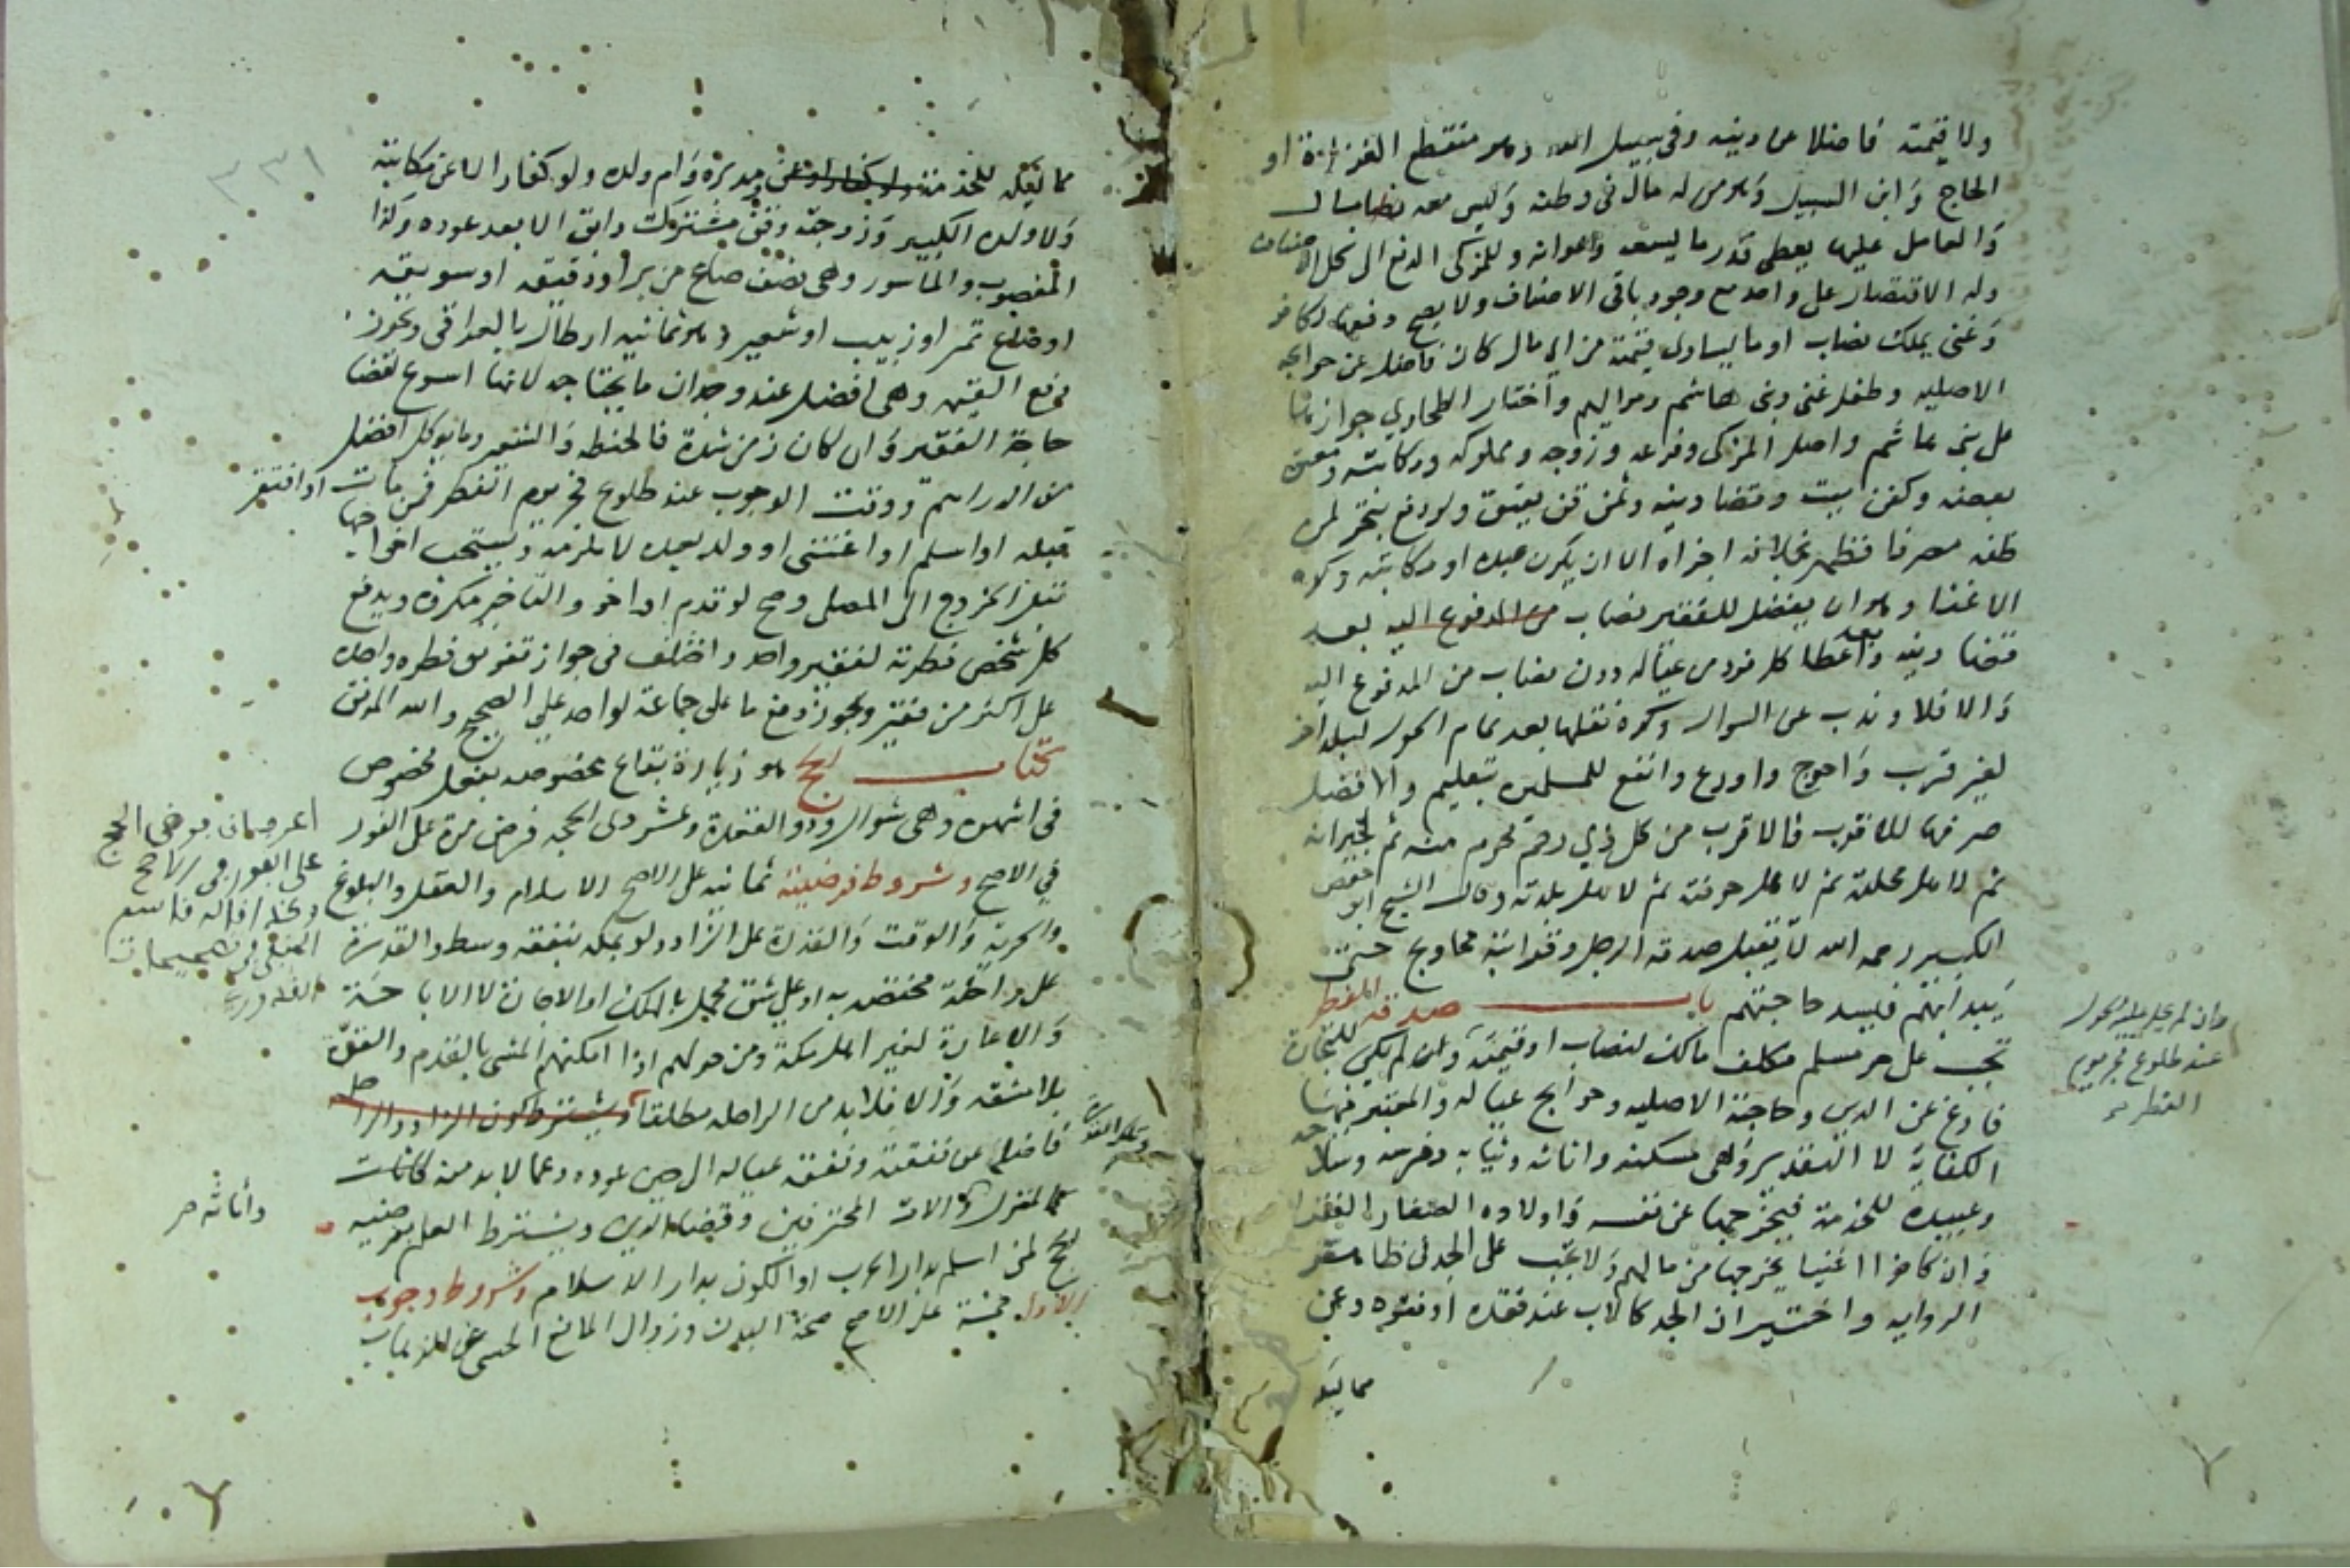 ولا قيمته فاضلا عن دينه وفى سبيل الله وهو منقطع الغزاة او
الحاج وَابن السبيل وَهو من له مال فى وطنه وَليس معه مال
وَالعامل عليها يعطى قدر ما يسعه واعوانه وللمزكى الدفع الى كل الاصناف
وله الاقتصار على واحد مع وجود باقى الاصناف ولا يصح دفعها لكافر
وَغنى يملك نصاب او ما يساوى قيمته من اى مال كان فاضل عن حوايجه
الاصليه وطفل غنى وبنى هاشم ومواليهم وأختار الطحاوي جواز دفعها
على بنى هاشم واصل المزكى وفرعه وزوجه ومملوكه ومكاتبه ومعتق
بعضه وكفن ميت وقضا دينه وثمن قن يعتق ولو دفع بتحر لمن
ظنه مصرفا فظهر بخلافه اجزاه الا ان يكون عبده او مكاتبه وكره
الاغنا وهو ان يفضل للفقير نصاب من المدفوع اليه بعد
قضا دينه وبعد اعطا كل فرد من عياله دون نصاب من المدفوع اليه
وَالا فلا وندب عن السوال وكره نقلها بعد تمام الحول لبلد اخر
لغير قريب وَاحوج واورع وانفع للمسلمين بتعليم والافضل
صرفها للاقرب فالاقرب من كل ذي رحم محرم منه ثم لجيرانه
ثم لاهل محلته ثم لاهل حرفته ثم لاهل بلدته وقال الشيخ ابو حفص
الكبير رحمه الله لا تقبل صدقة الرجل وقرابته محاويج حتى
يَبدا بهم فيسد حاجتهم باب صدقة الفطر
تجب على حر مسلم مكلف مالك لنصاب او قيمته وان لم يحل عليه الحول
عند طلوع فجر يوم
الفطر
وان لم يكن للتجارة
فارغ عن الدين وحاجته الاصليه وحوايج عياله والمعتبر فيها
الكفاية لا التقدير وَهى مسكنه واثاثه وثيابه وفرسه وسلاحه
وعبيده للخدمة فيخرجها عن نفسه وَاولاده الصغار الفقرا
وَان كانوا اغنيا يخرجها من مالهم وَلا تجب على الجد فى ظاهر
الروايه واختير ان الجد كالاب عند فقده او فقره وعن
مماليكه
٣٣١
مماليكه للخدمة ومدبره وَام ولده ولو كفارا لا عن مكاتبه
وَلا ولده الكبير وَزوجته وقن مشترك وابق الا بعد عوده وَكذا
المغصوب والماسور وهى نصف صاع من بر او دقيقه او سويقه
او صاع تمر او زبيب او شعير وهو ثمانيه ارطال بالعراقى ويجوز
دفع القيمه وهى افضل عند وجدان ما يحتاجه لانها اسرع لقضا
حاجة الفقير وَان كان زمن شدة فالحنطه وَالشعير وما يوكل افضل
من الدراهم ووقت الوجوب عند طلوع فجر يوم الفطر فمن مات او افتقر
قبله او اسلم او اغتنى او ولد بعده لا تلزمه ويستحب اخراجها
قبل الخروج الى المصلى وصح لو قدم او اخر والتاخير مكروه ويدفع
كل شخص فطرته لفقير واحد واختلف فى جواز تفريق فطره واحده
على اكثر من فقير ويجوز دفع ما على جماعة لواحد على الصحيح والله الموفق
كتاب الحج هو زيارة بقاع مخصوصه بفعل مخصوص
فى اشهره وهى شوال وذو القعدة وعشر ذى الحجه فرض مرة على الفور
في الاصح وشروط فرضيته ثمانيه على الاصح الاسلام والعقل والبلوغ
والحرية وَالوقت وَالقدرة على الزاد ولو بمكه بنفقه وسط والقدرة
على راحلة مختصه به او على شق محمل بالملك او الاجارة لا الاباحة
وَالاعارة لغير اهل مكة ومن حولهم اذا امكنهم المشى بالقدم والقوّة
بلا مشقه وَالا فلا بد من الراحله مطلقا ويشترط كون الزاد والراحله
وتلك القدرة فاضله عن نفقته ونفقة عياله الى حين عوده وعما لابد منه
كالمنزل وَالات المحترفين وقضا الدين ويشترط العلم بفرضيه
الحج لمن اسلم بدار الحرب او الكون بدار الاسلام وشروط وجوب
الادا خمسة على الاصح صحة البدن وزوال المانع الحسى عن الذهاب
واثاثه صح